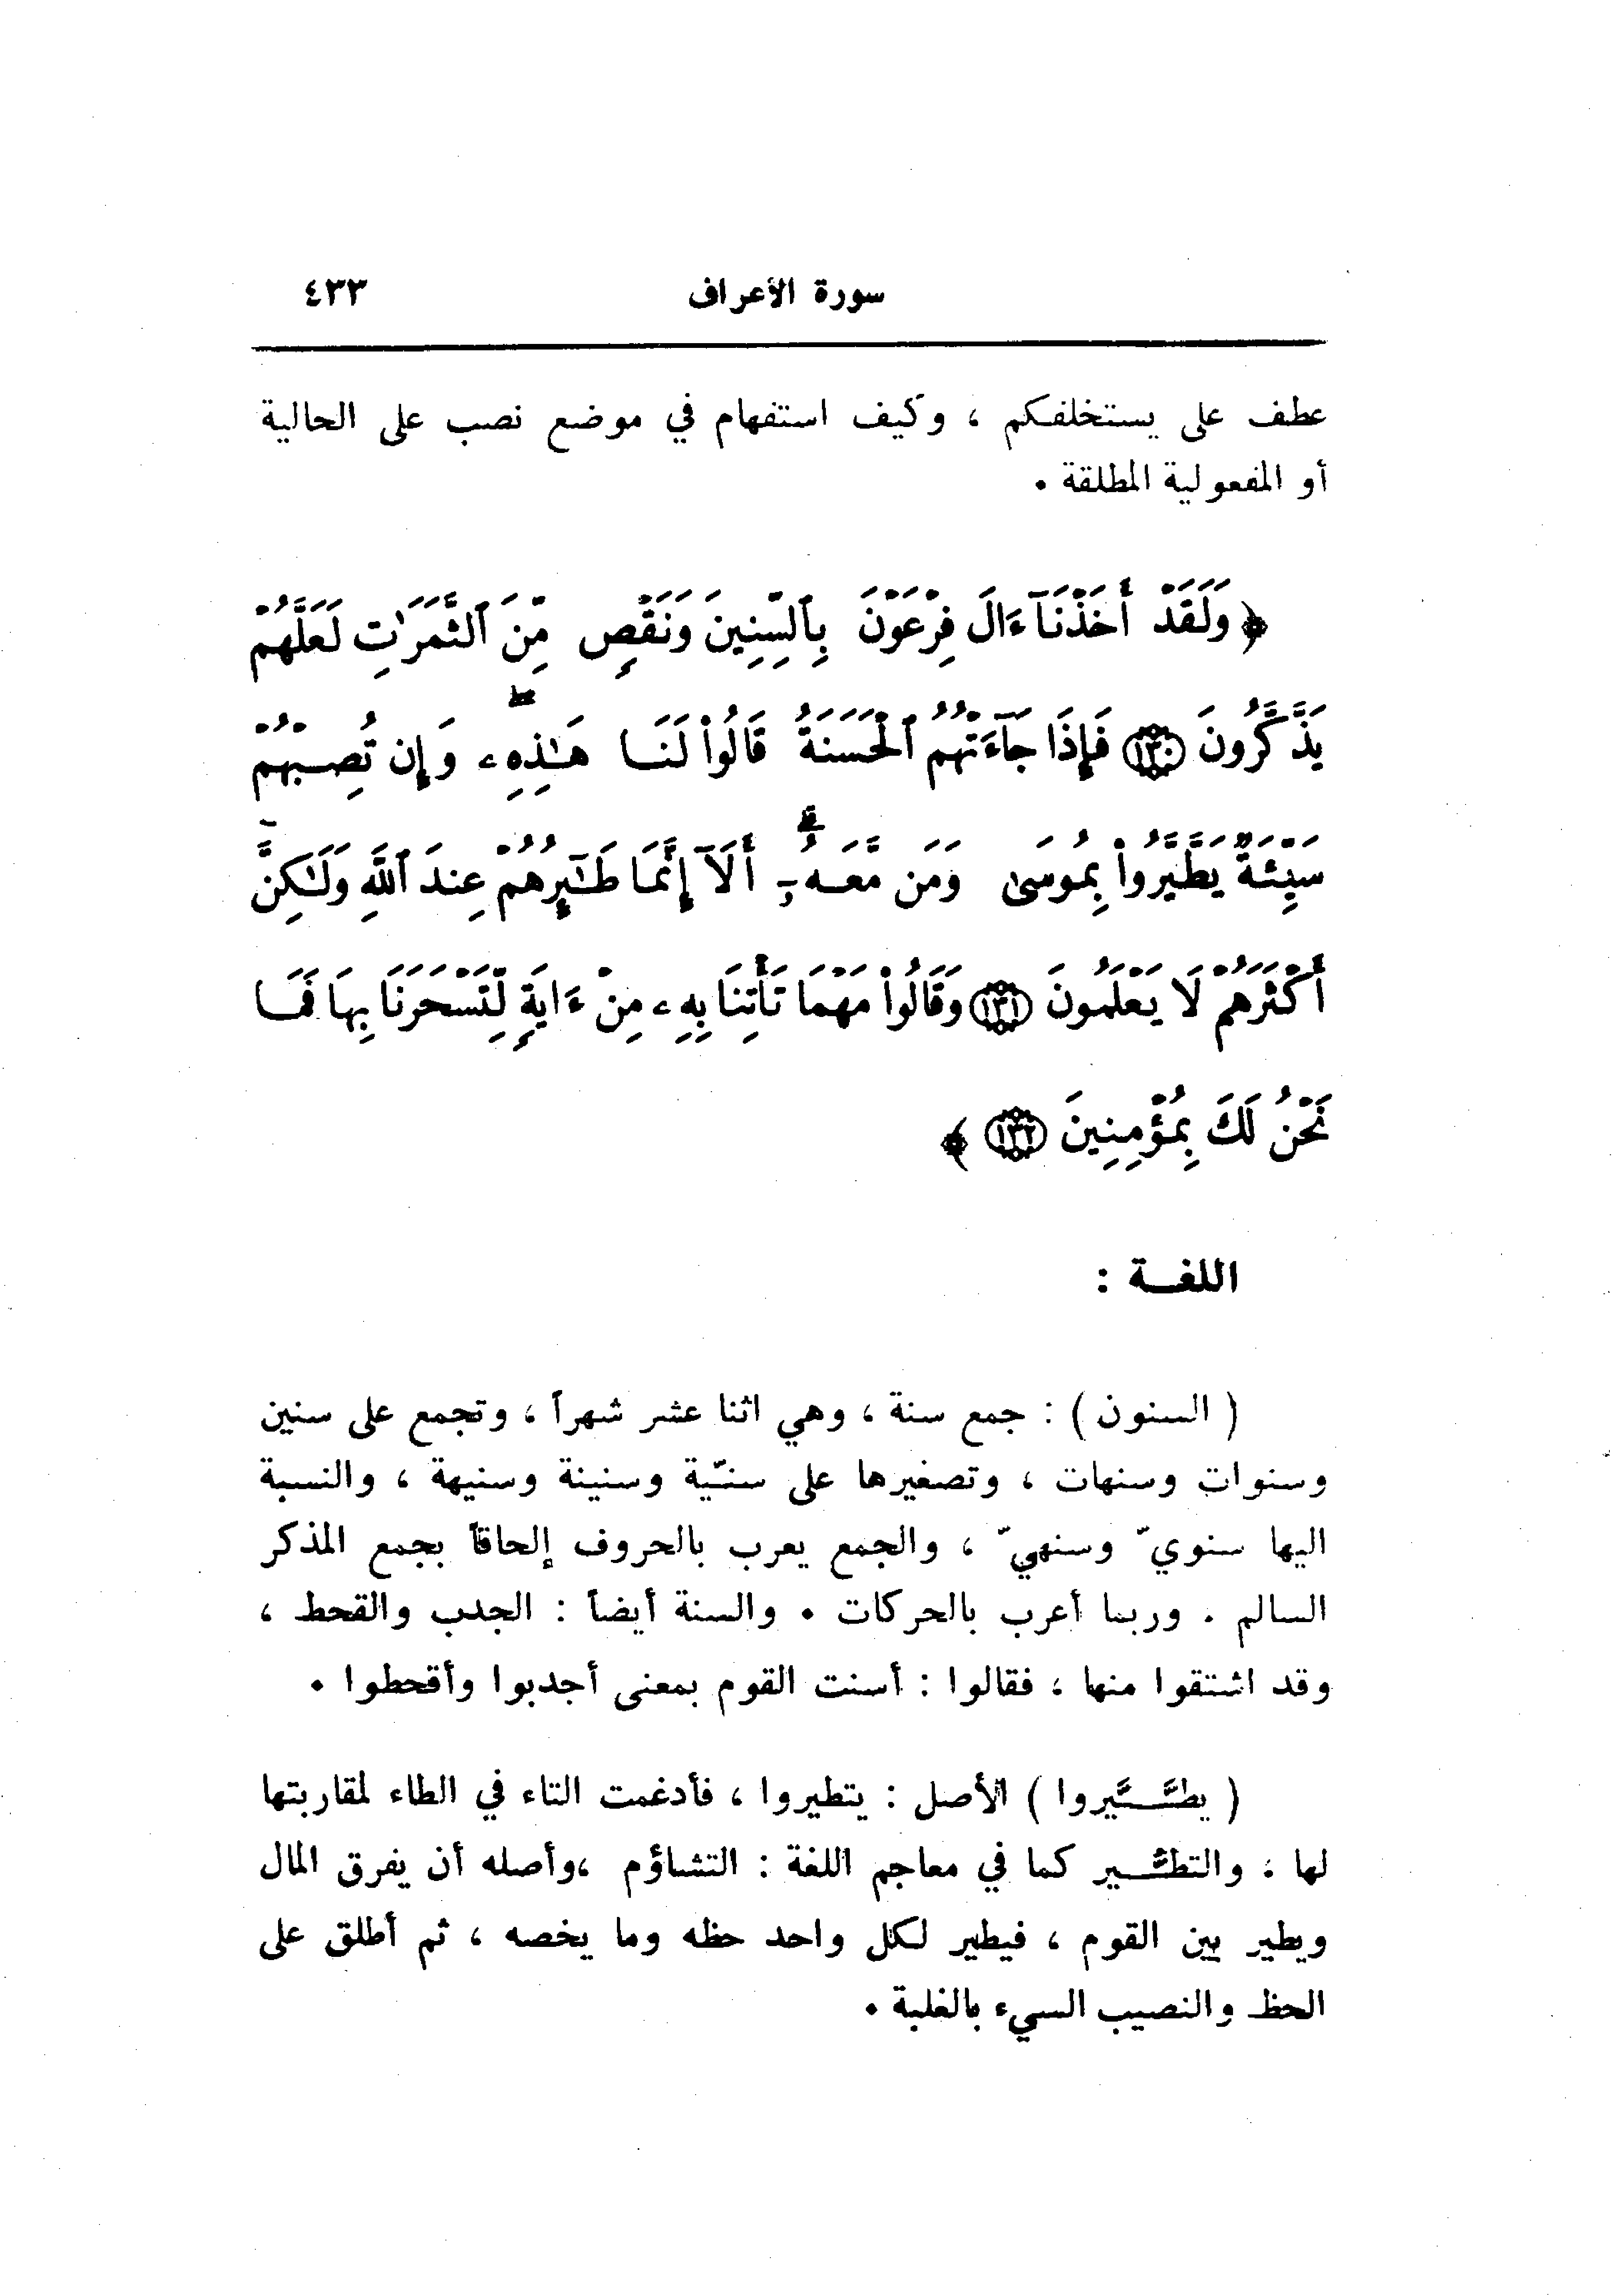 سورة الأعراف ٤٣٣
عطف على يستخلفكم ، وكيف استفهام في موضع نصب على الحالية
أو المفعولية المطلقة .
﴿ وَلَقَدْ أَخَذْنَآ ءَالَ فِرْعَوْنَ بِٱلسِّنِينَ وَنَقْصٍ مِّنَ ٱلثَّمَرَٰتِ لَعَلَّهُمْ
يَذَّكَّرُونَ ۝١٣٠ فَإِذَا جَآءَتْهُمُ ٱلْحَسَنَةُ قَالُوا۟ لَنَا هَـٰذِهِۦ ۖ وَإِن تُصِبْهُمْ
سَيِّئَةٌ يَطَّيَّرُوا۟ بِمُوسَىٰ وَمَن مَّعَهُۥٓ ۗ أَلَآ إِنَّمَا طَـٰٓئِرُهُمْ عِندَ ٱللَّهِ وَلَـٰكِنَّ
أَكْثَرَهُمْ لَا يَعْلَمُونَ ۝١٣١ وَقَالُوا۟ مَهْمَا تَأْتِنَا بِهِۦ مِنْ ءَايَةٍ لِّتَسْحَرَنَا بِهَا فَمَا
نَحْنُ لَكَ بِمُؤْمِنِينَ ۝١٣٢ ﴾
اللغـة :
( السنون ) : جمع سنة ، وهي اثنا عشر شهراً ، وتجمع على سنين
وسنوات وسنهات ، وتصغيرها على سنـيّة وسنينة وسنيهة ، والنسبة
اليها سنويّ وسنهيّ ، والجمع يعرب بالحروف إلحاقاً بجمع المذكر
السالم . وربما أعرب بالحركات . والسنة أيضاً : الجدب والقحط ،
وقد اشتقوا منها ، فقالوا : أسنت القوم بمعنى أجدبوا وأقحطوا .
( يطَّـيَّروا ) الأصل : يتطيروا ، فأدغمت التاء في الطاء لمقاربتها
لها ، والتطـيُّر كما في معاجم اللغة : التشاؤم ،وأصله أن يفرق المال
ويطير بين القوم ، فيطير لكل واحد حظه وما يخصه ، ثم أطلق على
الحظ والنصيب السيء بالغلبة .